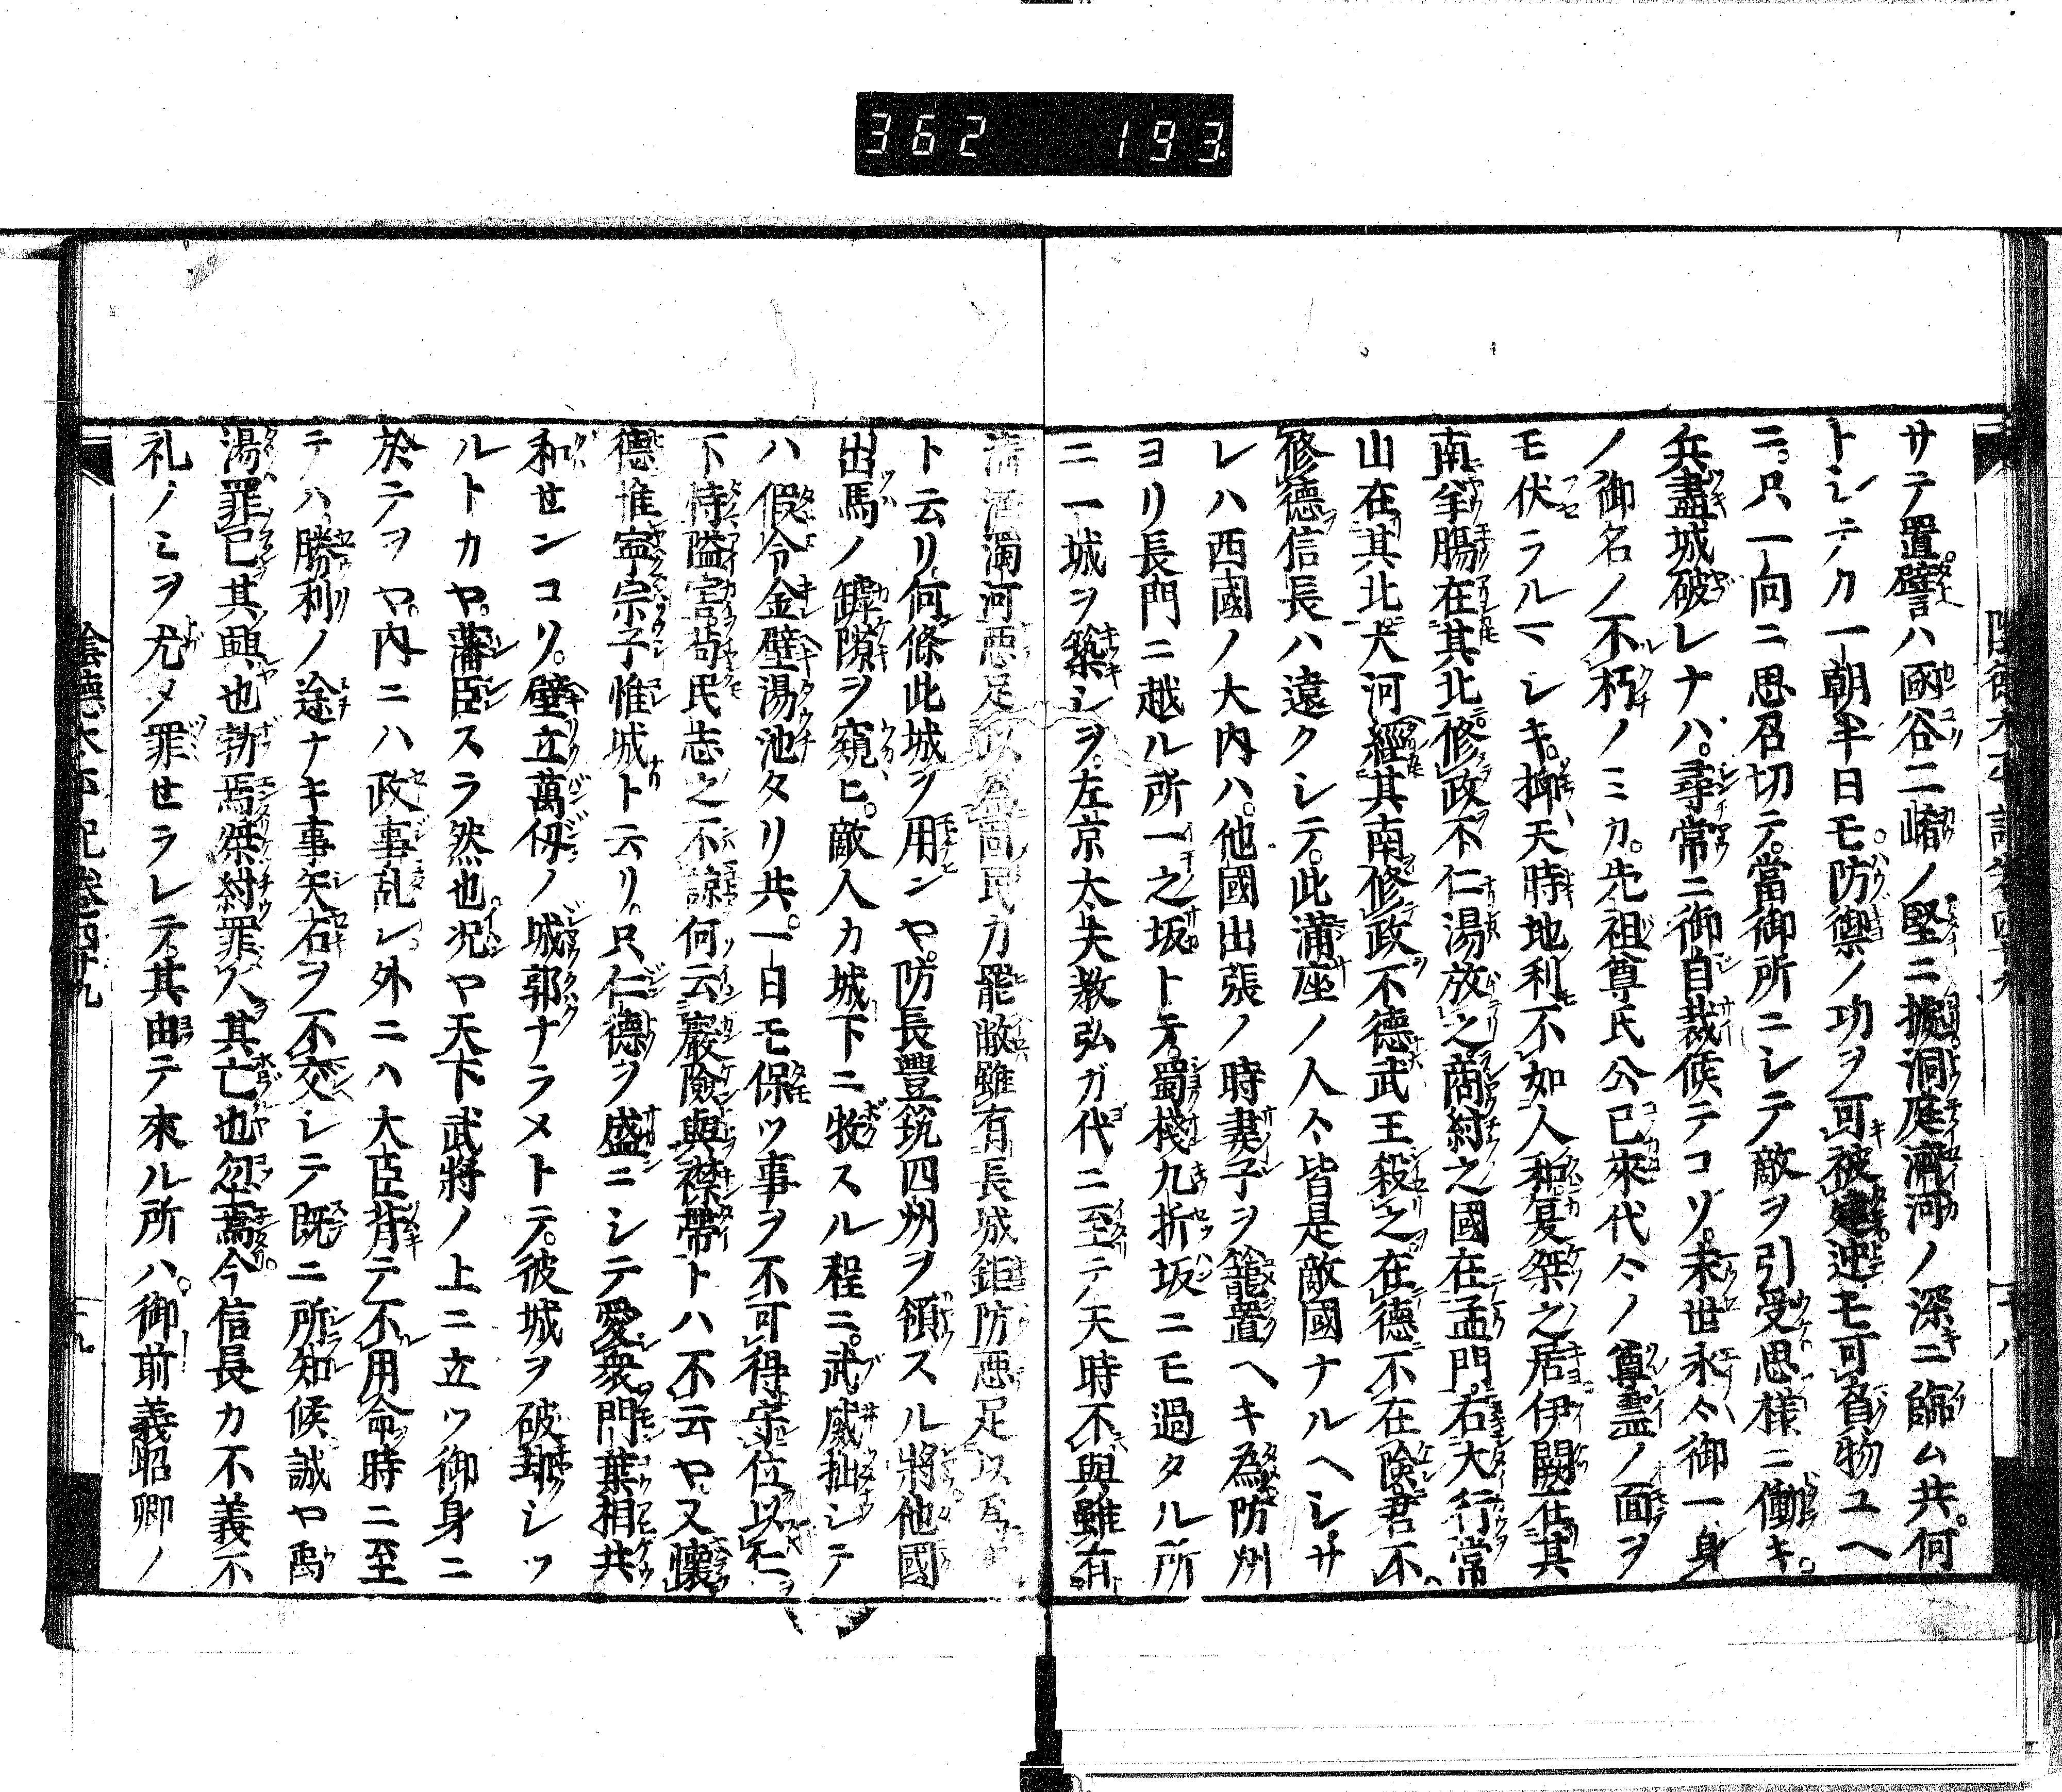 362 193
サテ置譬ハ函谷二崤ノ堅ニ據洞庭濟河ノ深ニ臨ム共何
トシテカ一朝半日モ防禦ノ功ヲ可被建迚モ可負物ユヘ
ニ只一向ニ思召切テ當御所ニシテ敵ヲ引受思様ニ働キ
兵盡城破レナハ尋常ニ御自裁候テコソ末世永々御一身
ノ御名ノ不朽ノミカ先祖尊氏公已來代々ノ尊霊ノ面ヲ
モ伏ラルマシキ抑天時地利不如人和夏桀之居伊闕在其
南羊腸在其北修政不仁湯放之商紂之國在孟門右大行常
山在其北大河經其南修政不德武王殺之在德不在険君不
修德信長ハ遠クシテ此蒲座ノ人々皆是敵國ナルヘシサ
レハ西國ノ大内ハ他國出張ノ時妻子ヲ籠置ヘキ為防州
ヨリ長門ニ越ル所一之坂トテ蜀棧九折坂ニモ過タル所
ニ一城ヲ築シヲ左京太夫教弘ガ代ニ至テ天時不與雖有
清濟濁河惡足以為固民力罷敝雖有長城鉅防惡足以
ト云リ何條此城ヲ用ンヤ防長豐筑四州ヲ領スル將他國
出馬ノ罅隙ヲ窺ヒ敵人カ城下ニ牧スル程ニ武威拙シテ
ハ假令金壁湯池タリ共一日モ保ツ事ヲ不可得守位以仁
下恃隘害尚民志之不諒何云巖險與襟帶トハ不云ヤ又懷
德惟寧宗子惟城ト云リ只仁德ヲ盛ニシテ愛衆門葉相共
和センコソ壁立萬仭ノ城郭ナラメトテ彼城ヲ破却シツ
ルトカヤ藩臣スラ然也况ヤ天下武將ノ上ニ立ツ御身ニ
於テヲヤ内ニハ政事乱レ外ニハ大臣背テ不用命時ニ至
テハ勝利ノ途ナキ事矢石ヲ不交シテ既ニ所知候誠ヤ禹
湯罪已其興也勃焉桀紂罪人其亡也忽焉今信長カ不義不
礼ノミヲ尤メ罪セラレテ其由テ來ル所ハ御前義昭卿ノ
陰德太平記卷四十九